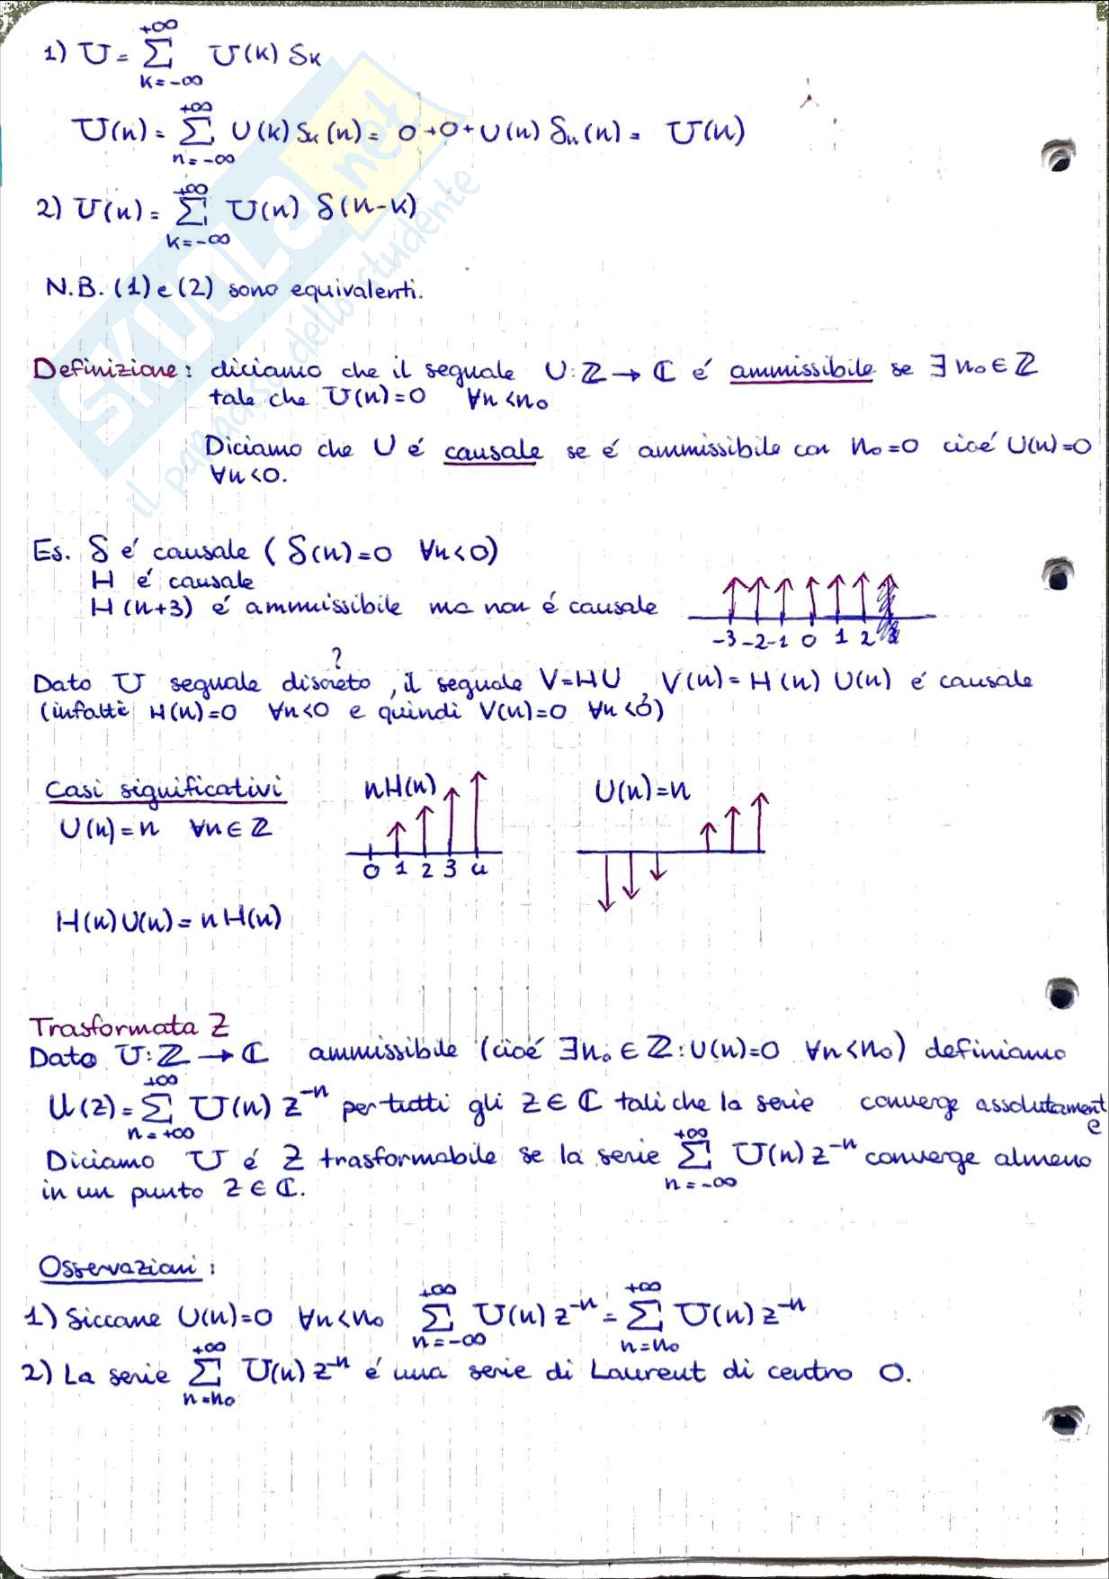 1) U = Σ_{k=-∞}^{+∞} U(k) δk
U(n) = Σ_{n=-∞}^{+∞} U(k) δk(n) = 0+0+U(n) δn(n) = U(n)
2) U(n) = Σ_{k=-∞}^{+∞} U(n) δ(n-k)
N.B. (1) e (2) sono equivalenti.
Definizione: diciamo che il segnale U: ℤ → ℂ é ammissibile se ∃ n₀ ∈ ℤ
tale che U(n)=0 ∀n<n₀
Diciamo che U é causale se é ammissibile con n₀=0 cioé U(n)=0
∀n<0.
Es. δ é causale (δ(n)=0 ∀n<0)
H é causale
H(n+3) é ammissibile ma non é causale
-3 -2 -1 0 1 2
?
Dato U segnale discreto, il segnale V=HU, V(n)=H(n) U(n) é causale
(infatti H(n)=0 ∀n<0 e quindi V(n)=0 ∀n<0)
Casi significativi
nH(n)
U(n)=n
U(n)=n ∀n∈ℤ
0 1 2 3 4
H(n)U(n)=nH(n)
Trasformata Z
Dato U: ℤ → ℂ ammissibile (cioé ∃n₀ ∈ ℤ: U(n)=0 ∀n<n₀) definiamo
U(z) = Σ_{n=+∞}^{+∞} U(n) z^{-n} per tutti gli z ∈ ℂ tali che la serie converge assolutamente
Diciamo U é Z trasformabile se la serie Σ_{n=-∞}^{+∞} U(n) z^{-n} converge almeno
in un punto z ∈ ℂ.
Osservazioni:
1) Siccome U(n)=0 ∀n<n₀ Σ_{n=-∞}^{+∞} U(n) z^{-n} = Σ_{n=n₀}^{+∞} U(n) z^{-n}
2) La serie Σ_{n=n₀}^{+∞} U(n) z^{-n} é una serie di Laurent di centro 0.
SKUOLA.net
il paradiso dello studente